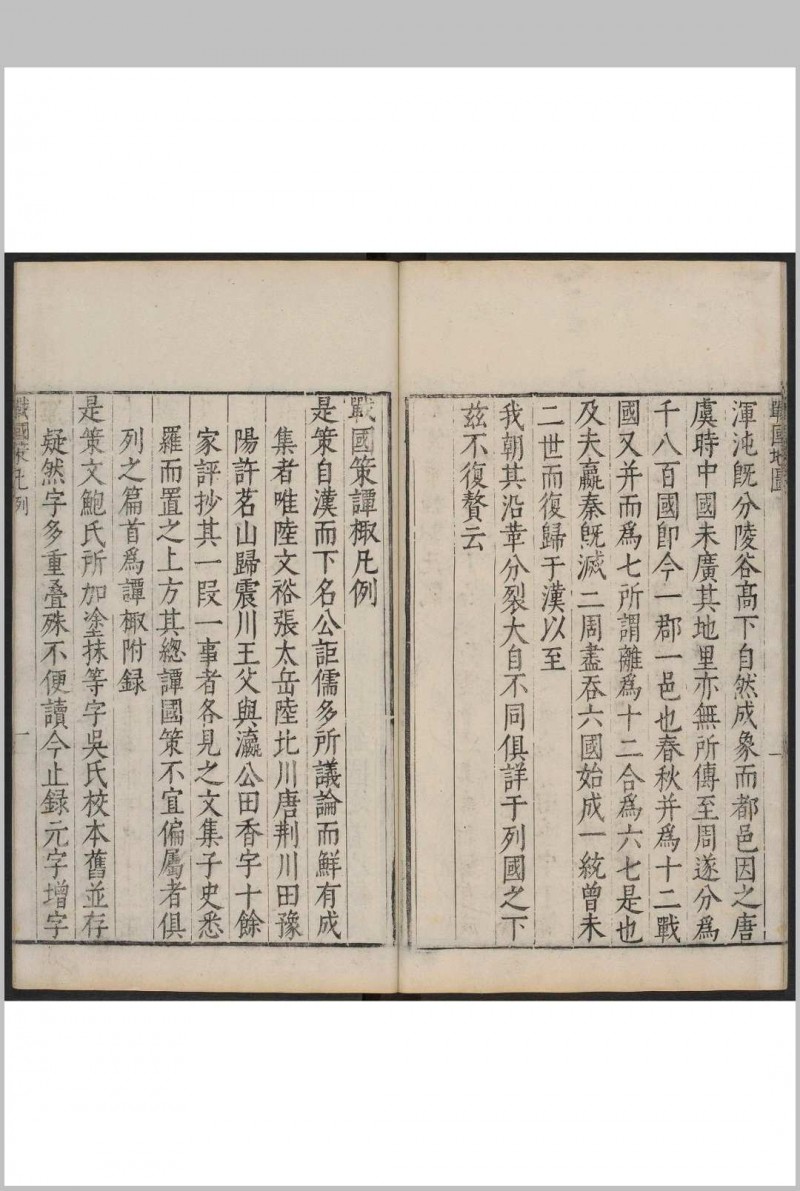 戰國地圖
一
渾沌旣分陵谷髙下自然成象而都邑因之唐
虞時中國未廣其地里亦無所傳至周遂分爲
千八百國卽今一郡一邑也春秋并爲十二戰
國又并而爲七所謂離爲十二合爲六七是也
及夫嬴秦旣滅二周盡吞六國始成一統曾未
二世而復歸于漢以至
我朝其沿革分裂大自不同俱詳于列國之下
茲不復贅云
戰國策譚棷凡例
是策自漢而下名公詎儒多所議論而鮮有成
集者唯陸文裕張太岳陸北川唐荆川田豫
陽許茗山歸震川王父與瀛公田香宇十餘
家評抄其一叚一事者各見之文集子史悉
羅而置之上方其總譚國策不宜偏屬者俱
列之篇首爲譚棷附録
是策文鮑氏所加塗抹等字吳氏校本舊並存
疑然字多重叠殊不便讀今止録元字增字
戰國策凡例
一